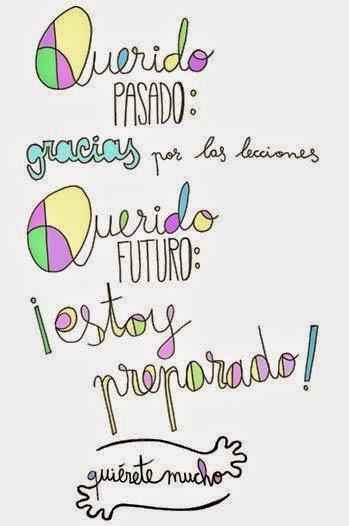 Querido
PASADO:
gracias por las lecciones
Querido
FUTURO:
¡estoy
preparado!
quiérete mucho